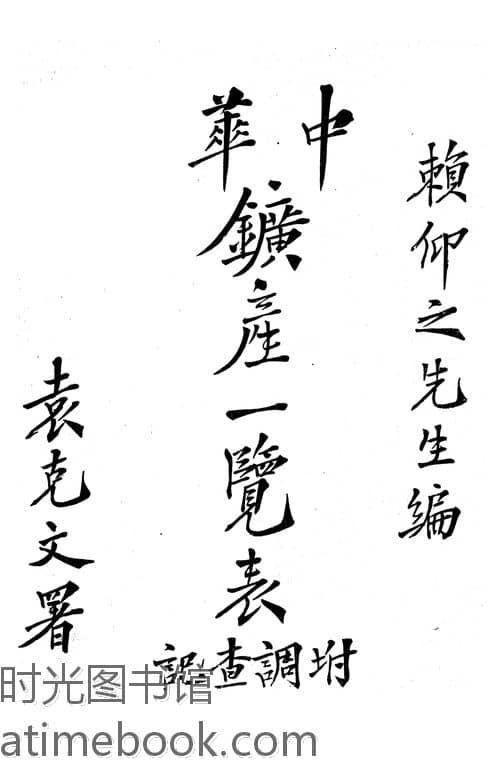 賴仰之先生編
中華
鑛產一覽表
坿調查記
袁克文署
时光图书馆
atimebook.com